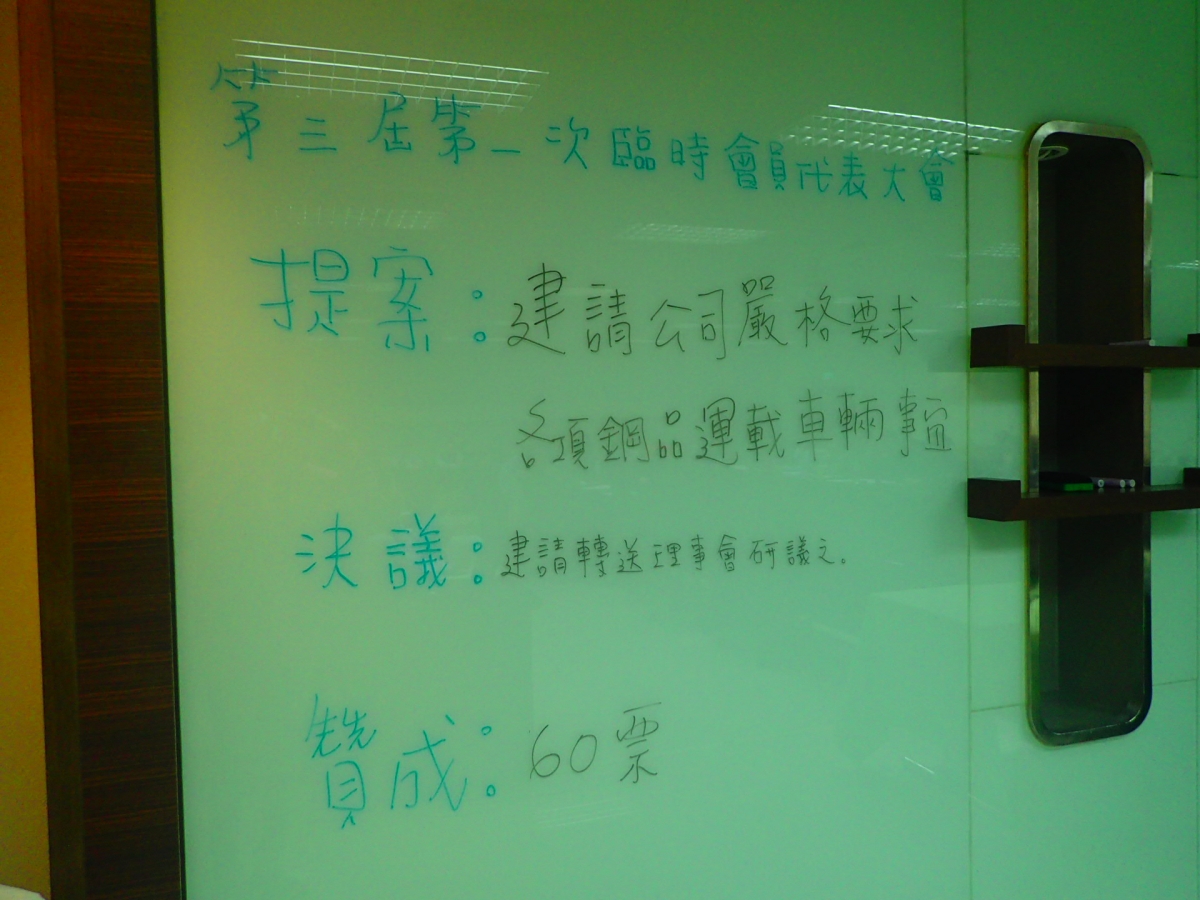 第三屆第一次臨時會員代表大會
提案：建請公司嚴格要求
各項鋼品運載車輛事宜
決議：建請轉送理事會研議之。
贊成：60票